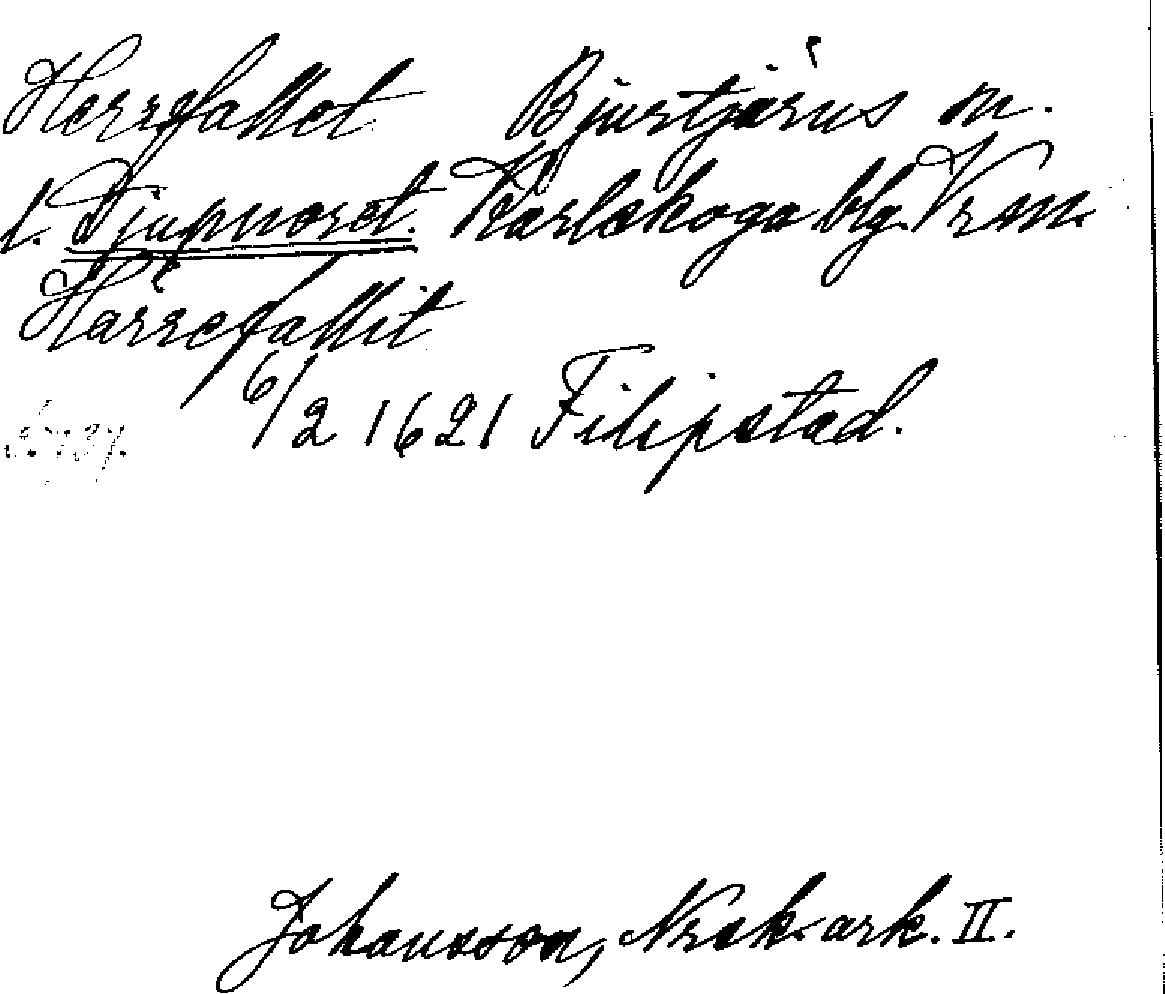 Herrefallet Bjurtjärns sn.
l. Djupnoret. Karlskoga blg. Vrml.
Härrefallit
6/2 1621 Filipstad.
Johansson, Nrsk. ark. II.